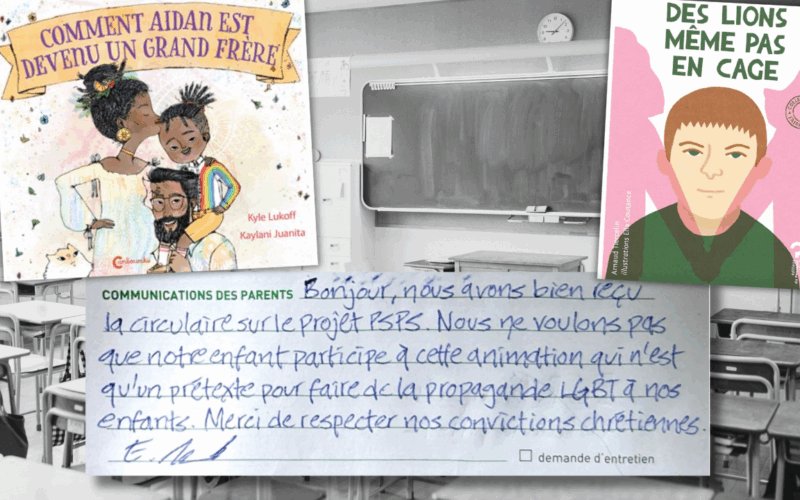 COMMENT AIDAN EST
DEVENU UN GRAND FRÈRE
Kyle Lukoff
Kaylani Juanita
Cambourakis
DES LIONS
MÊME PAS
EN CAGE
illustrations Ella Coutance
COMMUNICATIONS DES PARENTS Bonjour, nous avons bien reçu
la circulaire sur le projet PSPS. Nous ne voulons pas
que notre enfant participe à cette animation qui n'est
qu'un prétexte pour faire de la propagande LGBT à nos
enfants. Merci de respecter nos convictions chrétiennes.
demande d'entretien